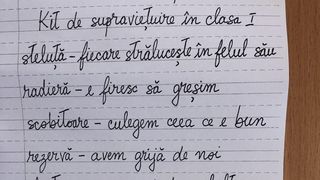 Kit de supraviețuire în clasa I
steluță - fiecare strălucește în felul său
radieră - e firesc să greșim
scobitoare - culegem ceea ce e bun
rezervă - avem grijă de noi